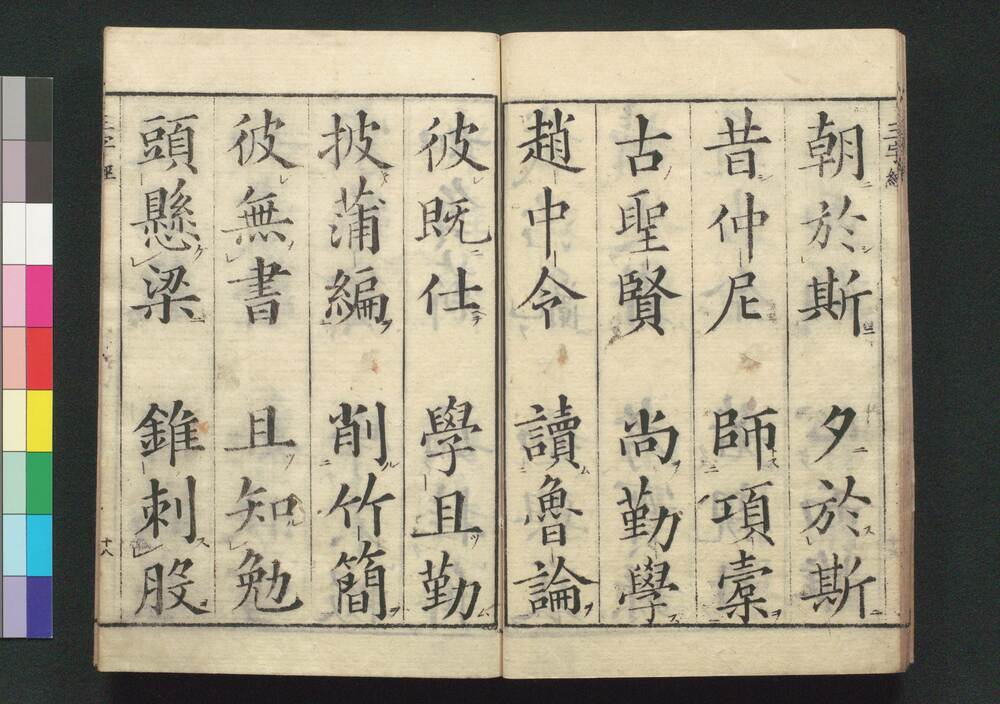 朝於斯 夕於斯
昔仲尼 師項橐
古聖賢 尚勤學
趙中令 讀魯論
彼既仕 學且勤
披蒲編 削竹簡
彼無書 且知勉
頭懸梁 錐刺股
十八